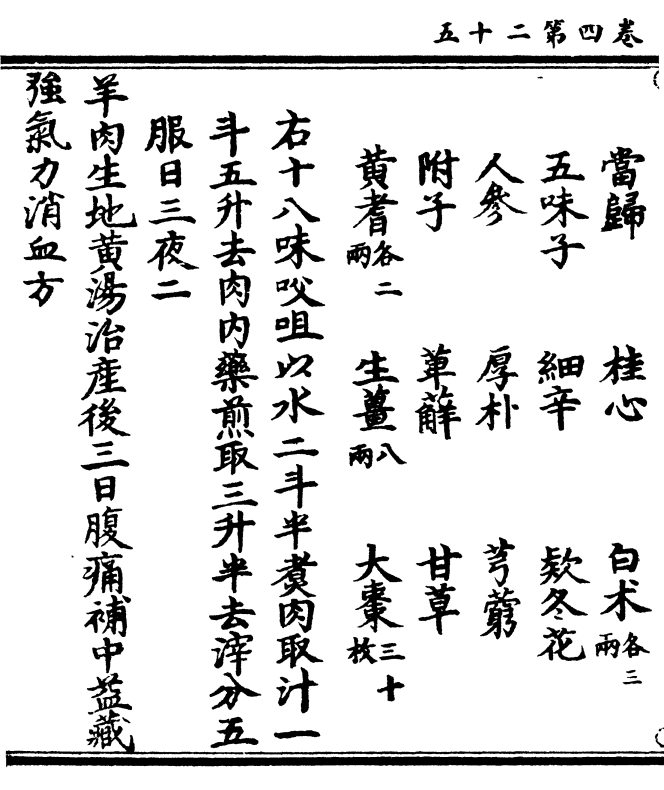 卷四第二十五
當歸 桂心 白朮各三兩
五味子 細辛 欵冬花
人參 厚朴 芎藭
附子 萆薢 甘草
黃耆各二兩 生薑八兩 大棗三十枚
右十八味㕮咀以水二斗半煑肉取汁一
斗五升去肉內藥煎取三升半去滓分五
服日三夜二
羊肉生地黃湯治產後三日腹痛補中益藏
強氣力消血方